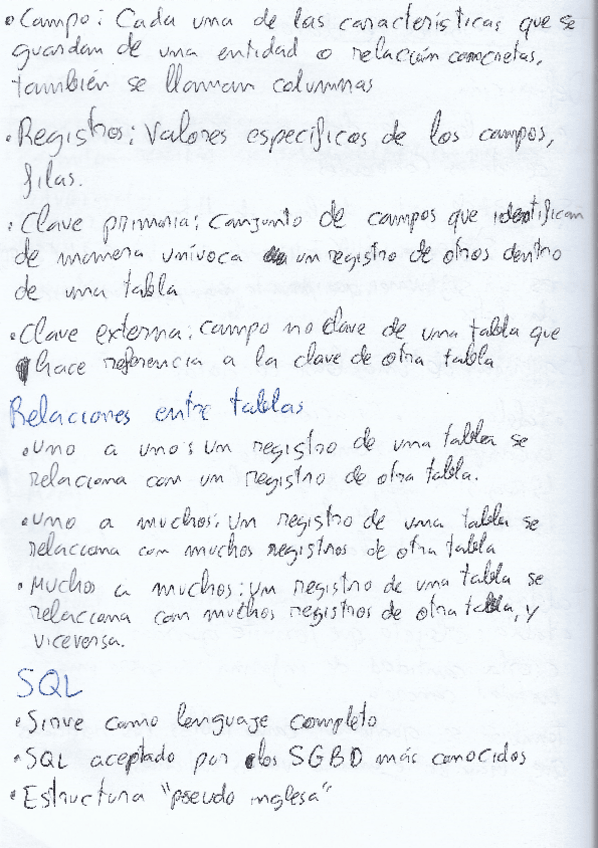 • Campo: Cada una de las características que se
guardan de una entidad o relación concretas,
también se llaman columnas
• Registros: Valores específicos de los campos,
filas.
• Clave primaria: conjunto de campos que identifican
de manera unívoca un registro de otros dentro
de una tabla
• Clave externa: campo no clave de una tabla que
hace referencia a la clave de otra tabla
Relaciones entre tablas
• Uno a uno: Un registro de una tabla se
relaciona con un registro de otra tabla.
• Uno a muchos: Un registro de una tabla se
relacciona con muchos registros de otra tabla
• Muchos a muchos: Un registro de una tabla se
relacciona con muchos registros de otra tabla, y
viceversa.
SQL
• Sirve como lenguaje completo
• SQL aceptado por los SGBD más conocidos
• Estructura "pseudo inglesa"